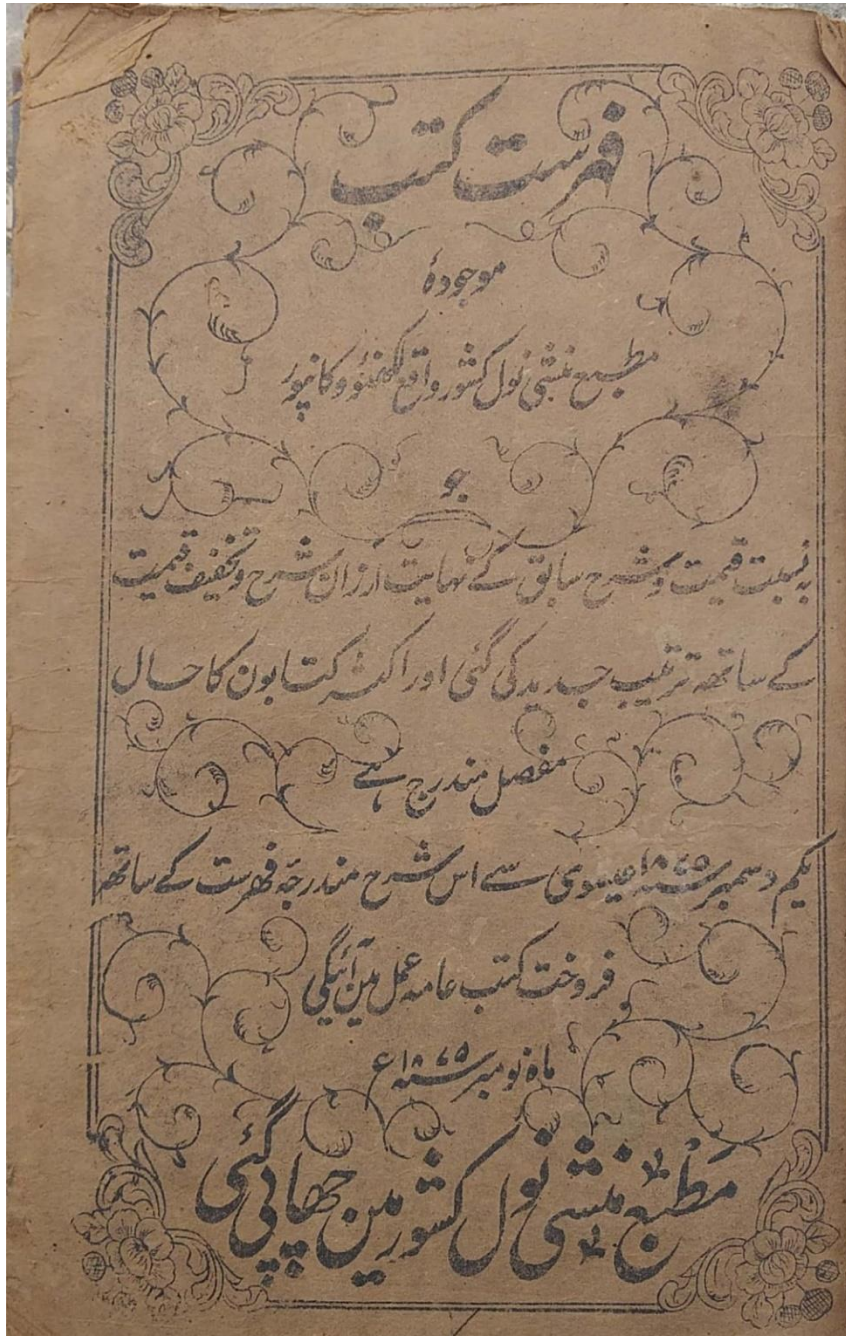 فہرست کتب
موجودۂ
مطبع منشی نول کشور واقع لکھنؤ و کانپور
جو
بہ نسبت قیمت و شرح سابق کے نہایت ارزان شرح و تخفیف قیمت
کے ساتھہ ترتیب جدید کی گئی اور اکثر کتابون کا حال
مفصل مندرج ہے
یکم دسمبر سنہ ۱۸۷۵ عیسوی سے اس شرح مندرجہ فہرست کے ساتھہ
فروخت کتب عامہ عمل مین آئیگی
ماہ نومبر سنہ ۱۸۷۵ ع
مطبع منشی نول کشور مین چھاپی گئی